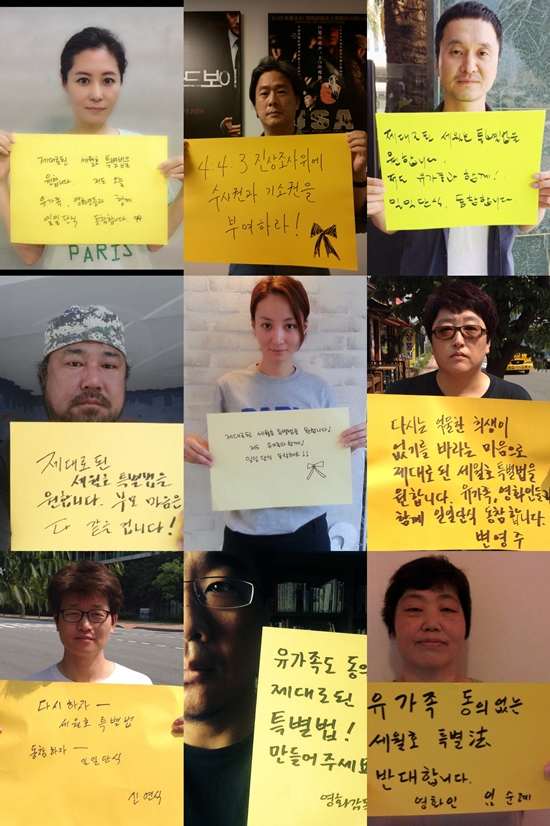 제대로된 세월호 특별법을
원합니다. 저도 오늘
유가족, 영화인들과 함께
일일단식 동참합니다.
PARIS
드보이
4.4.3 진상조사위에
수사권과 기소권을
부여하라!
JSA
제대로된 세월호 특별법을
원합니다.
저도 유가족과 함께!
일일단식, 동참합니다
제대로된
세월호 특별법을
원합니다. 부모 마음은
다 같을 겁니다!
제대로된 세월호 특별법을 원합니다!
저도 유가족과 함께!
일일단식 동참해요!!
다시는 억울한 희생이
없기를 바라는 마음으로
제대로 된 세월호 특별법을
원합니다. 유가족, 영화인들과
함께 일일단식 동참 합니다.
변영주
다시하라 —
세월호 특별법
동참하라 —
일일단식
신연식
유가족도 동의
제대로된
특별법!
만들어주세요
영화감독
유가족 동의 없는
세월호 특별法
반대합니다.
영화인 임순례